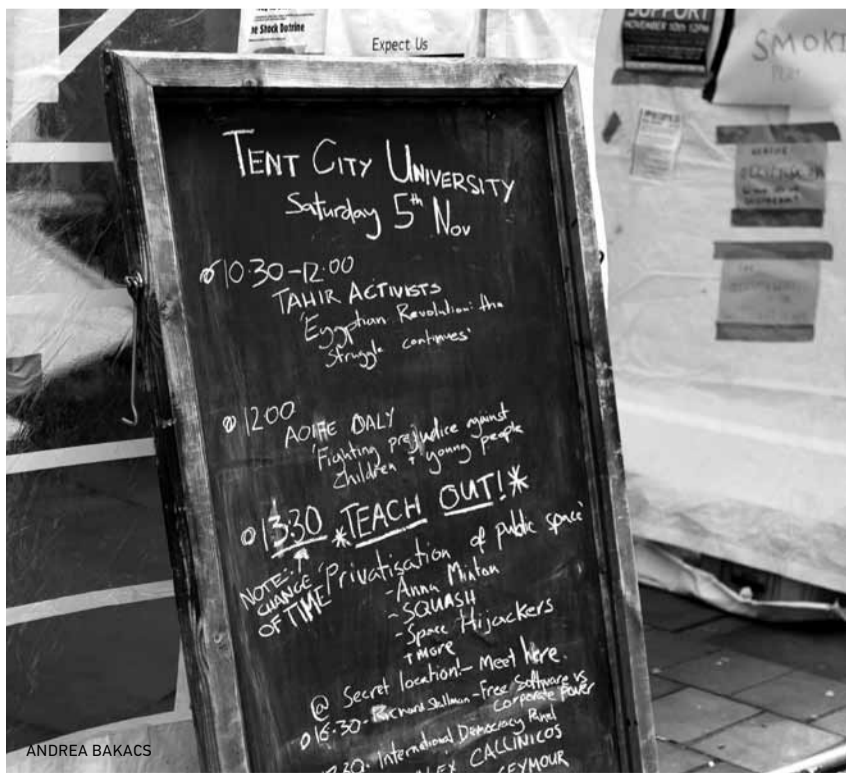 The Shock Doctrine
Expect Us
SUPPORT
NOVEMBER 10th 12PM
SMOKI
TENT CITY UNIVERSITY
Saturday 5th Nov
10:30-12:00
TAHIR ACTIVISTS
'Egyptian Revolution: the
struggle continues'
12:00
AOIFE DALY
'Fighting prejudice against
children + young people
13:30 *TEACH OUT!*
NOTE:
CHANGE
OF TIME
'Privatisation of public space'
- Anna Minton
- SQUASH
- Space Hijackers
+ more
@ Secret location! - Meet here.
16:30 · Richard Stallman - Free Software vs
Corporate power
30 · International Democracy Panel
LEX CALLINICOS
EYMOUR
ANDREA BAKACS